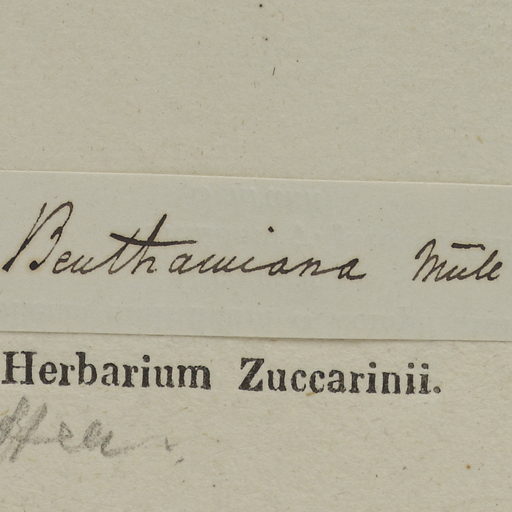 Benthamiana Mūll
Herbarium Zuccarinii.